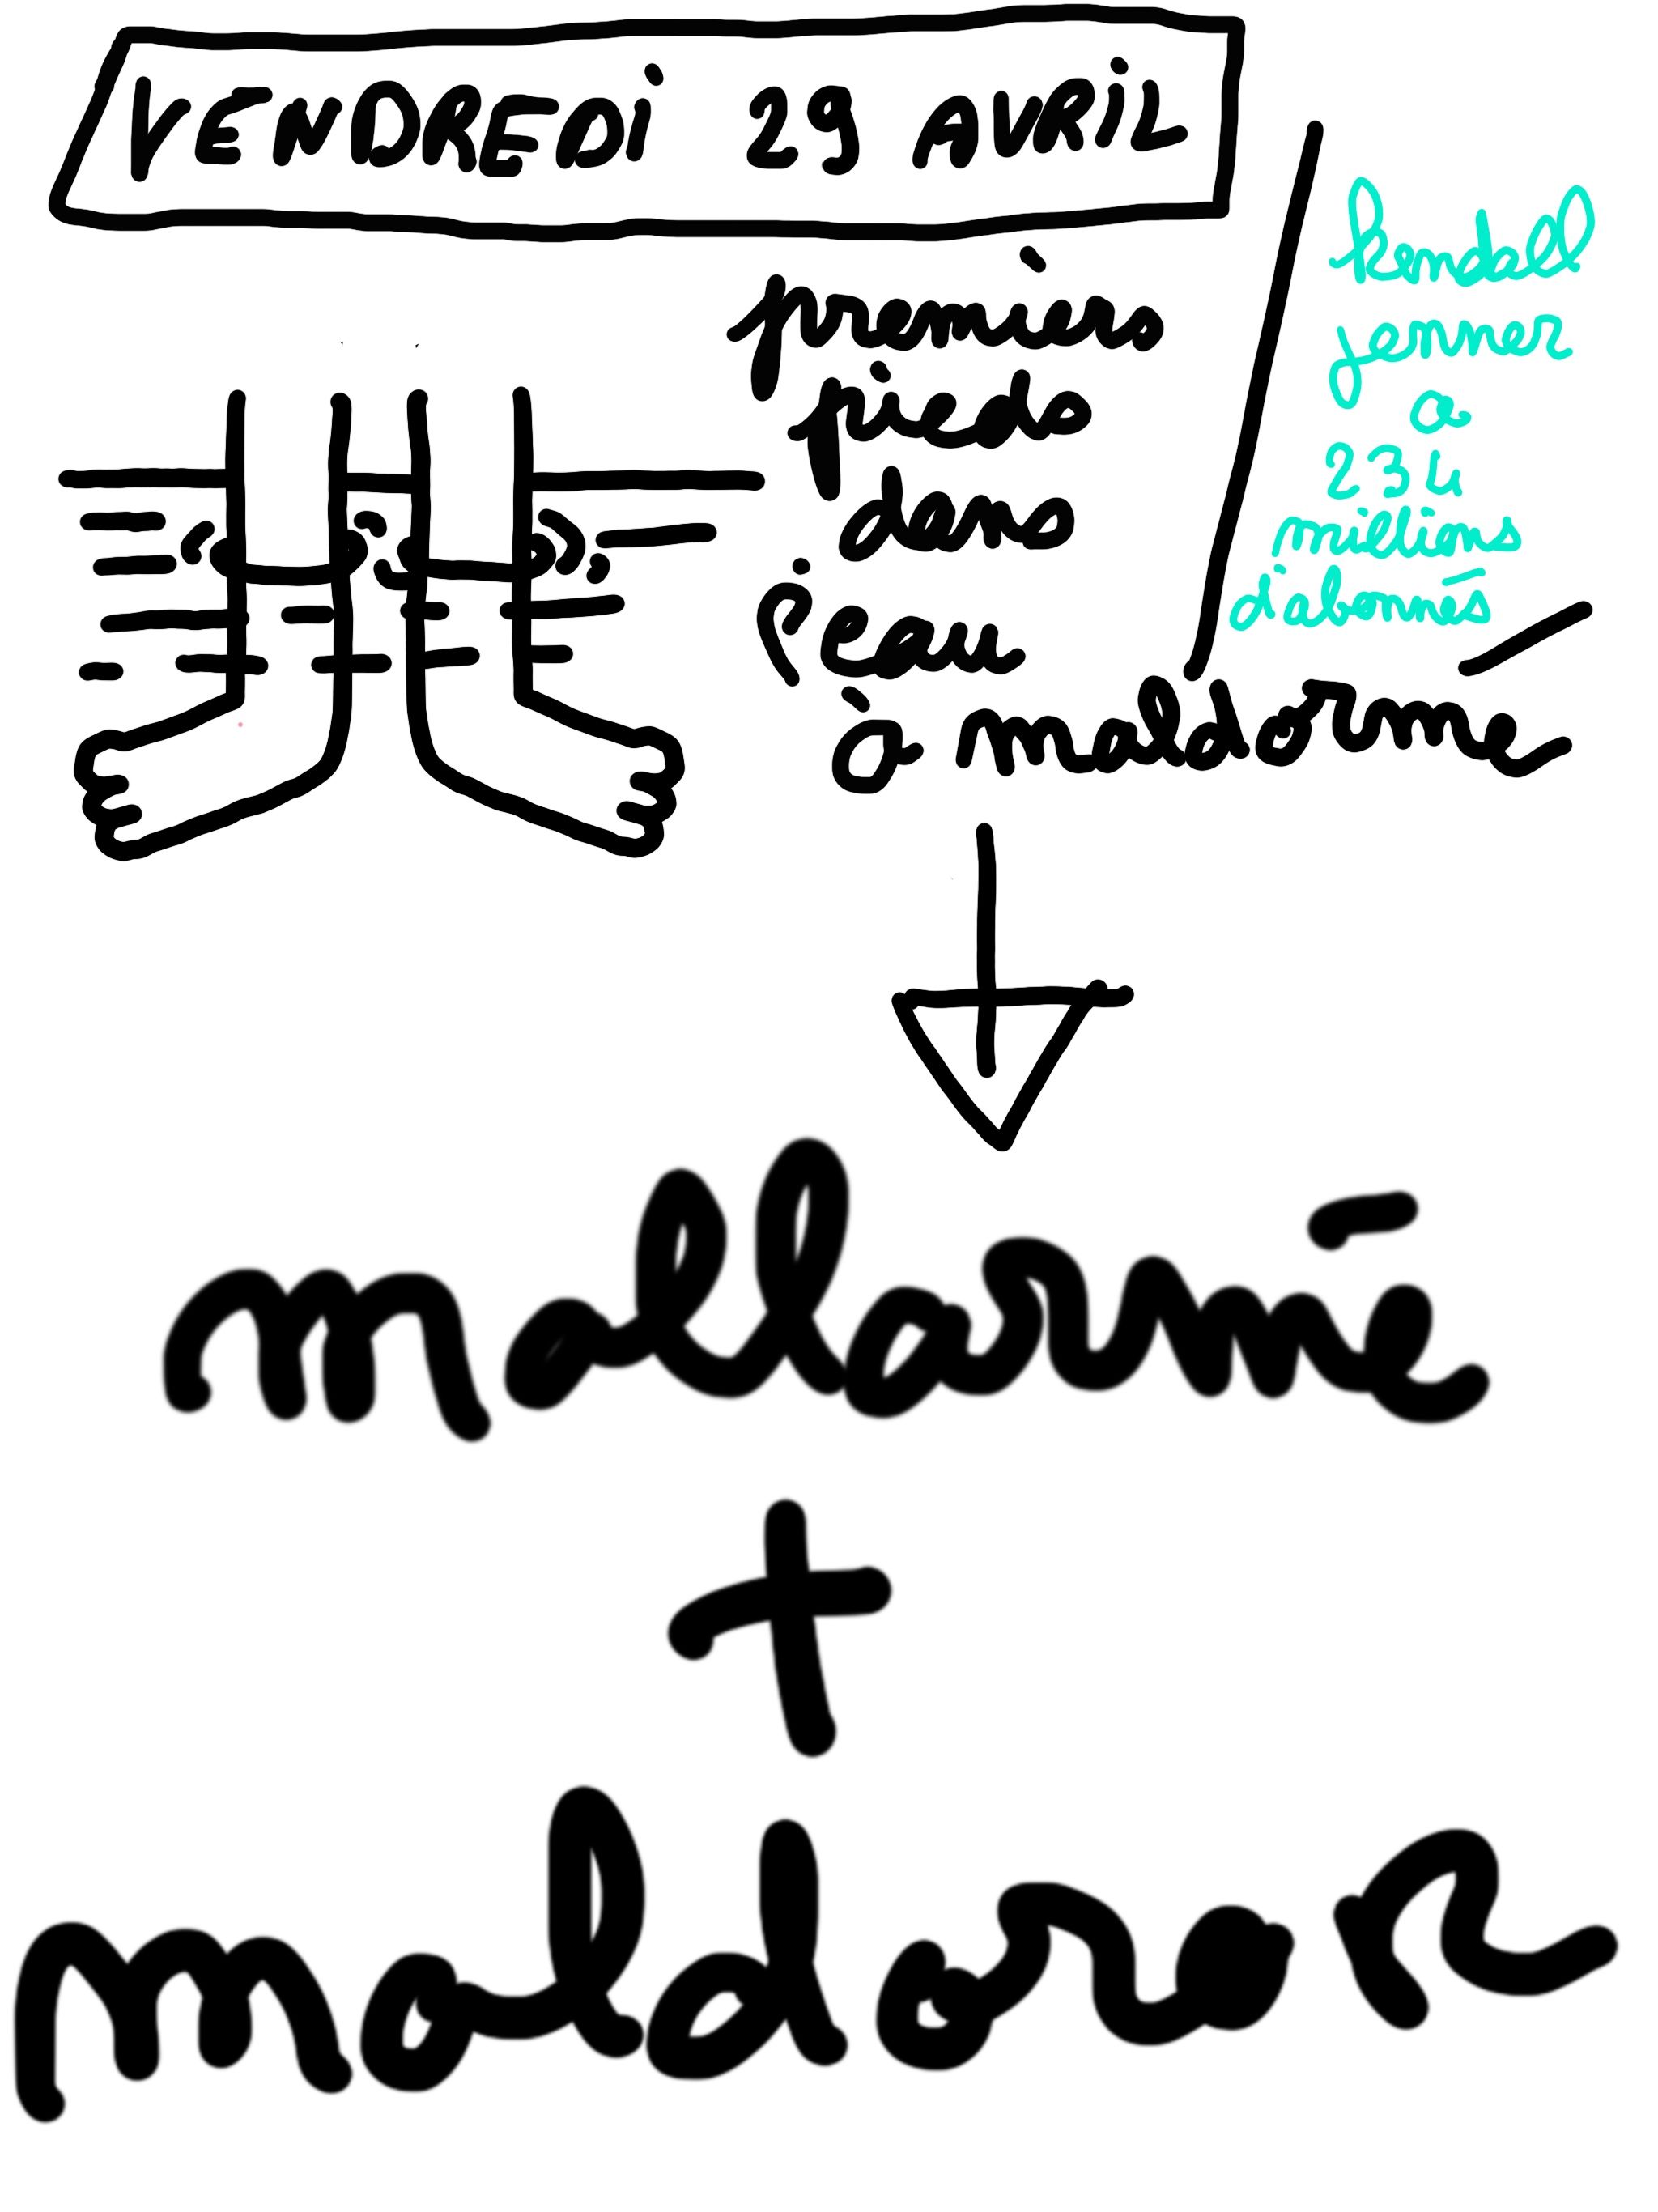 VENDREDI 29 AVRIL
premiers
pieds
dans
l'eau
à maldormé
kendall
jenner
a
234
millions
d'abonnés
mallarmé
+
maldoror